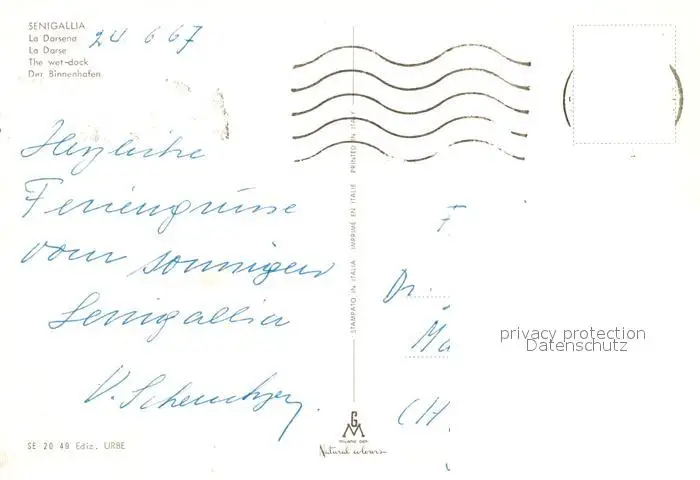 SENIGALLIA
La Darsena
La Darse
The wet-dock
Der Binnenhafen
24 6 67
Herzliche
Feriengrüsse
vom sonnigen
Senigallia
V.
STAMPATO IN ITALIA IMPRIMÉ EN ITALIE PRINTED IN ITALY
F.
Dr.
Ma
(CH.
privacy protection
Datenschutz
SE 20 49 Ediz. URBE
GM
Natural colours